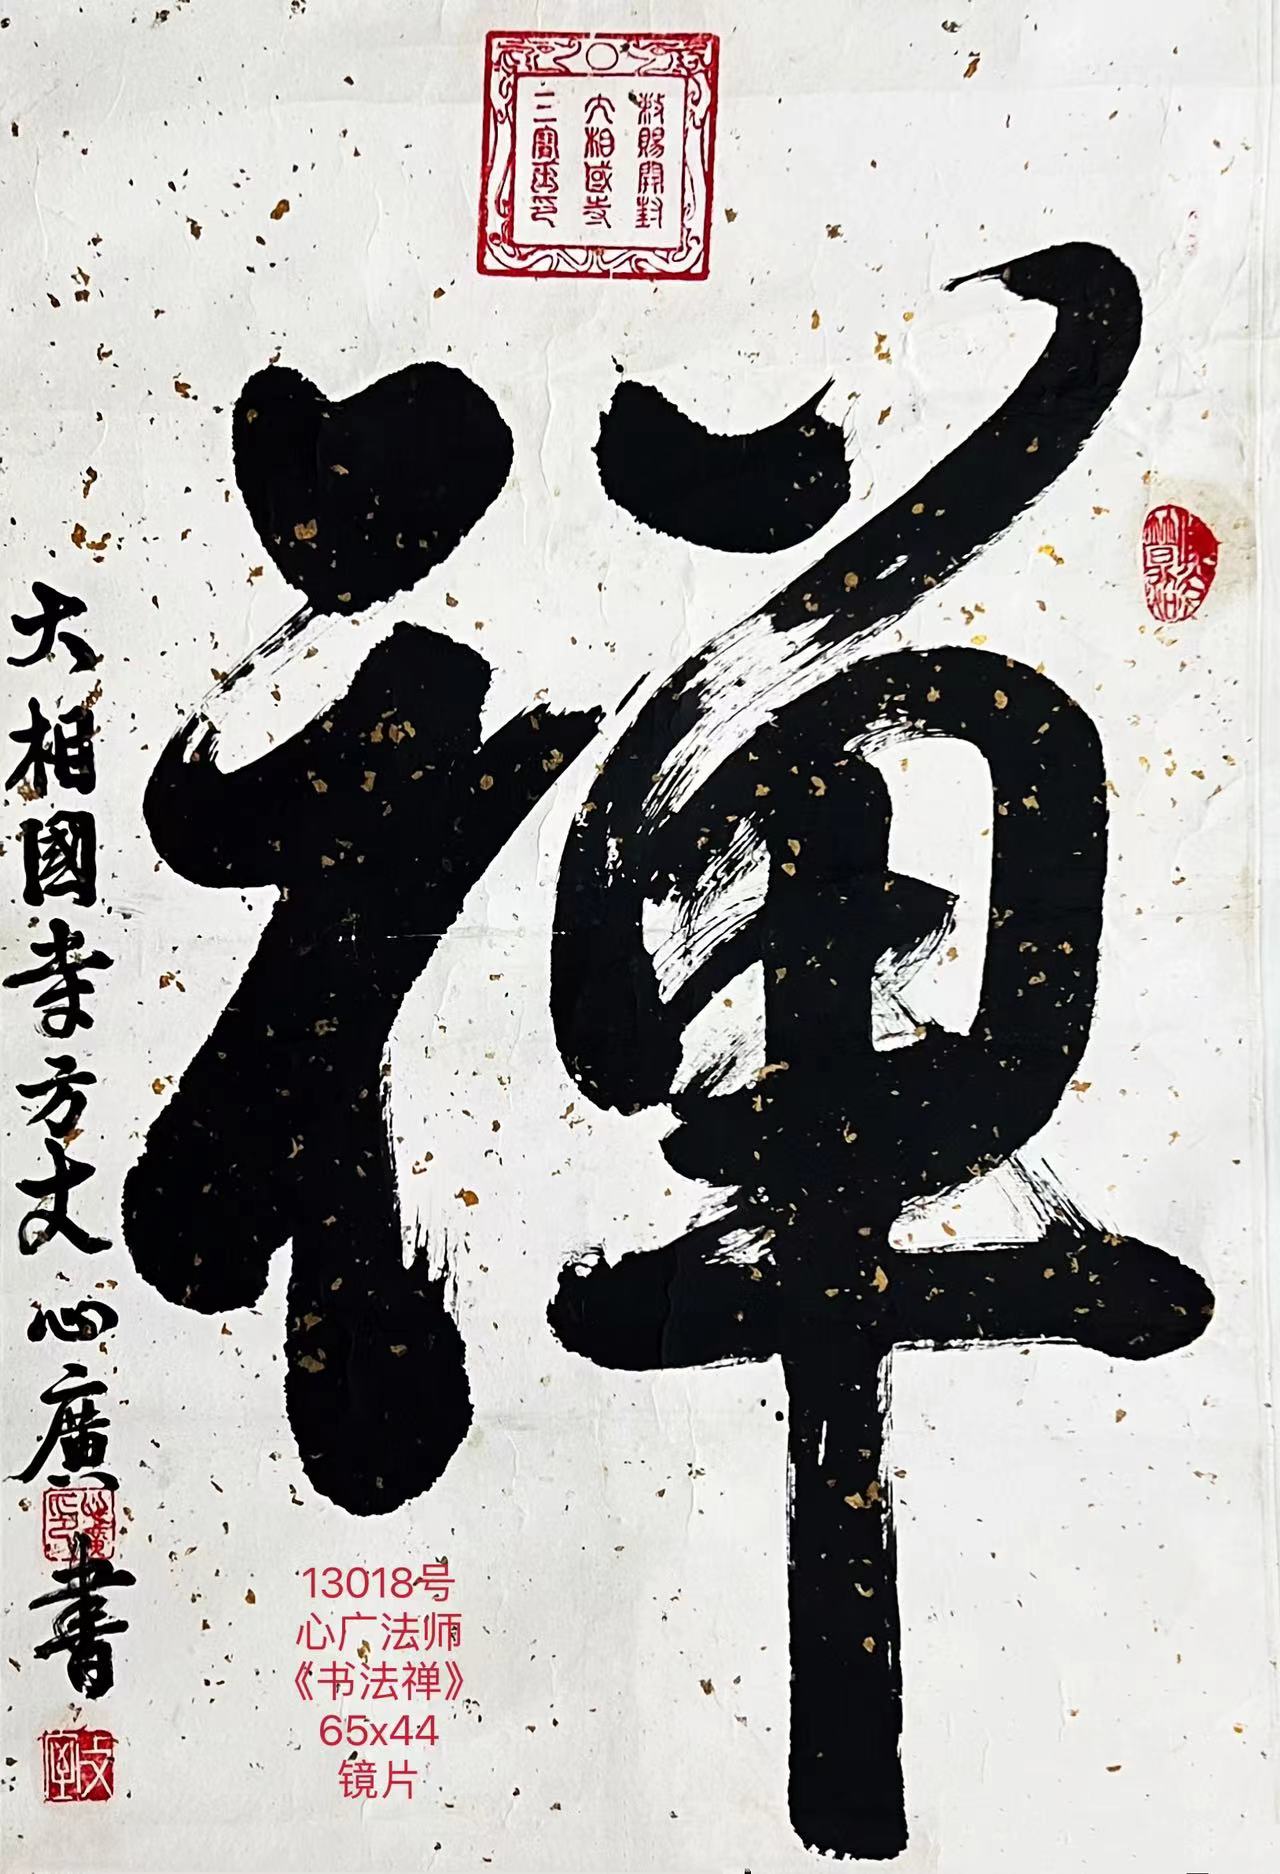 敕賜開封
大相國寺
三寶玉印
禪
大相國寺方丈心廣書
心廣
13018号
心广法师
《书法禅》
65x44
镜片